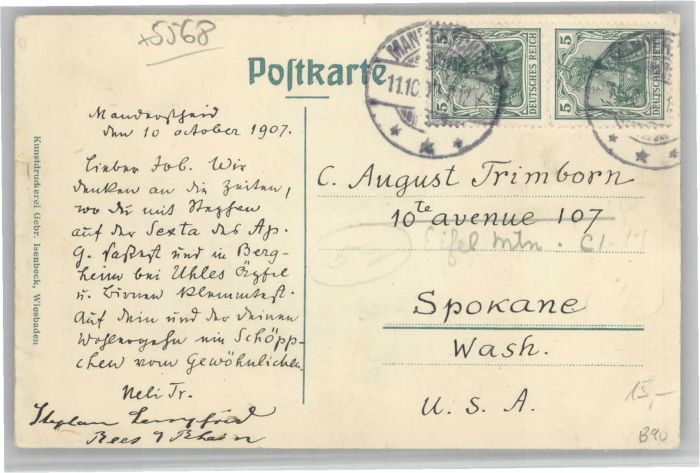 +5568
Postkarte
5 DEUTSCHES REICH 5
5 DEUTSCHES REICH
11.10.
Manderscheid
den 10 october 1907.
Lieber Job. Wir
denken an die Zeiten,
wo du mit Stephan
auf der Sexta des Ap.
G. saßest und in Berg-
heim bei Uhles Äpfel
u. Birnen klemmtest.
Auf dein und der deinen
Wohlergehn ein Schöpp-
chen vom Gewöhnlichen.
Neli Tr.
Stephan
Rees a Rhein
C. August Trimborn
10te avenue 107
Eifel Mtn. Cl.
Spokane
Wash.
U. S. A.
15,-
B90
Kunstdruckerei Gebr. Isenbeck, Wiesbaden